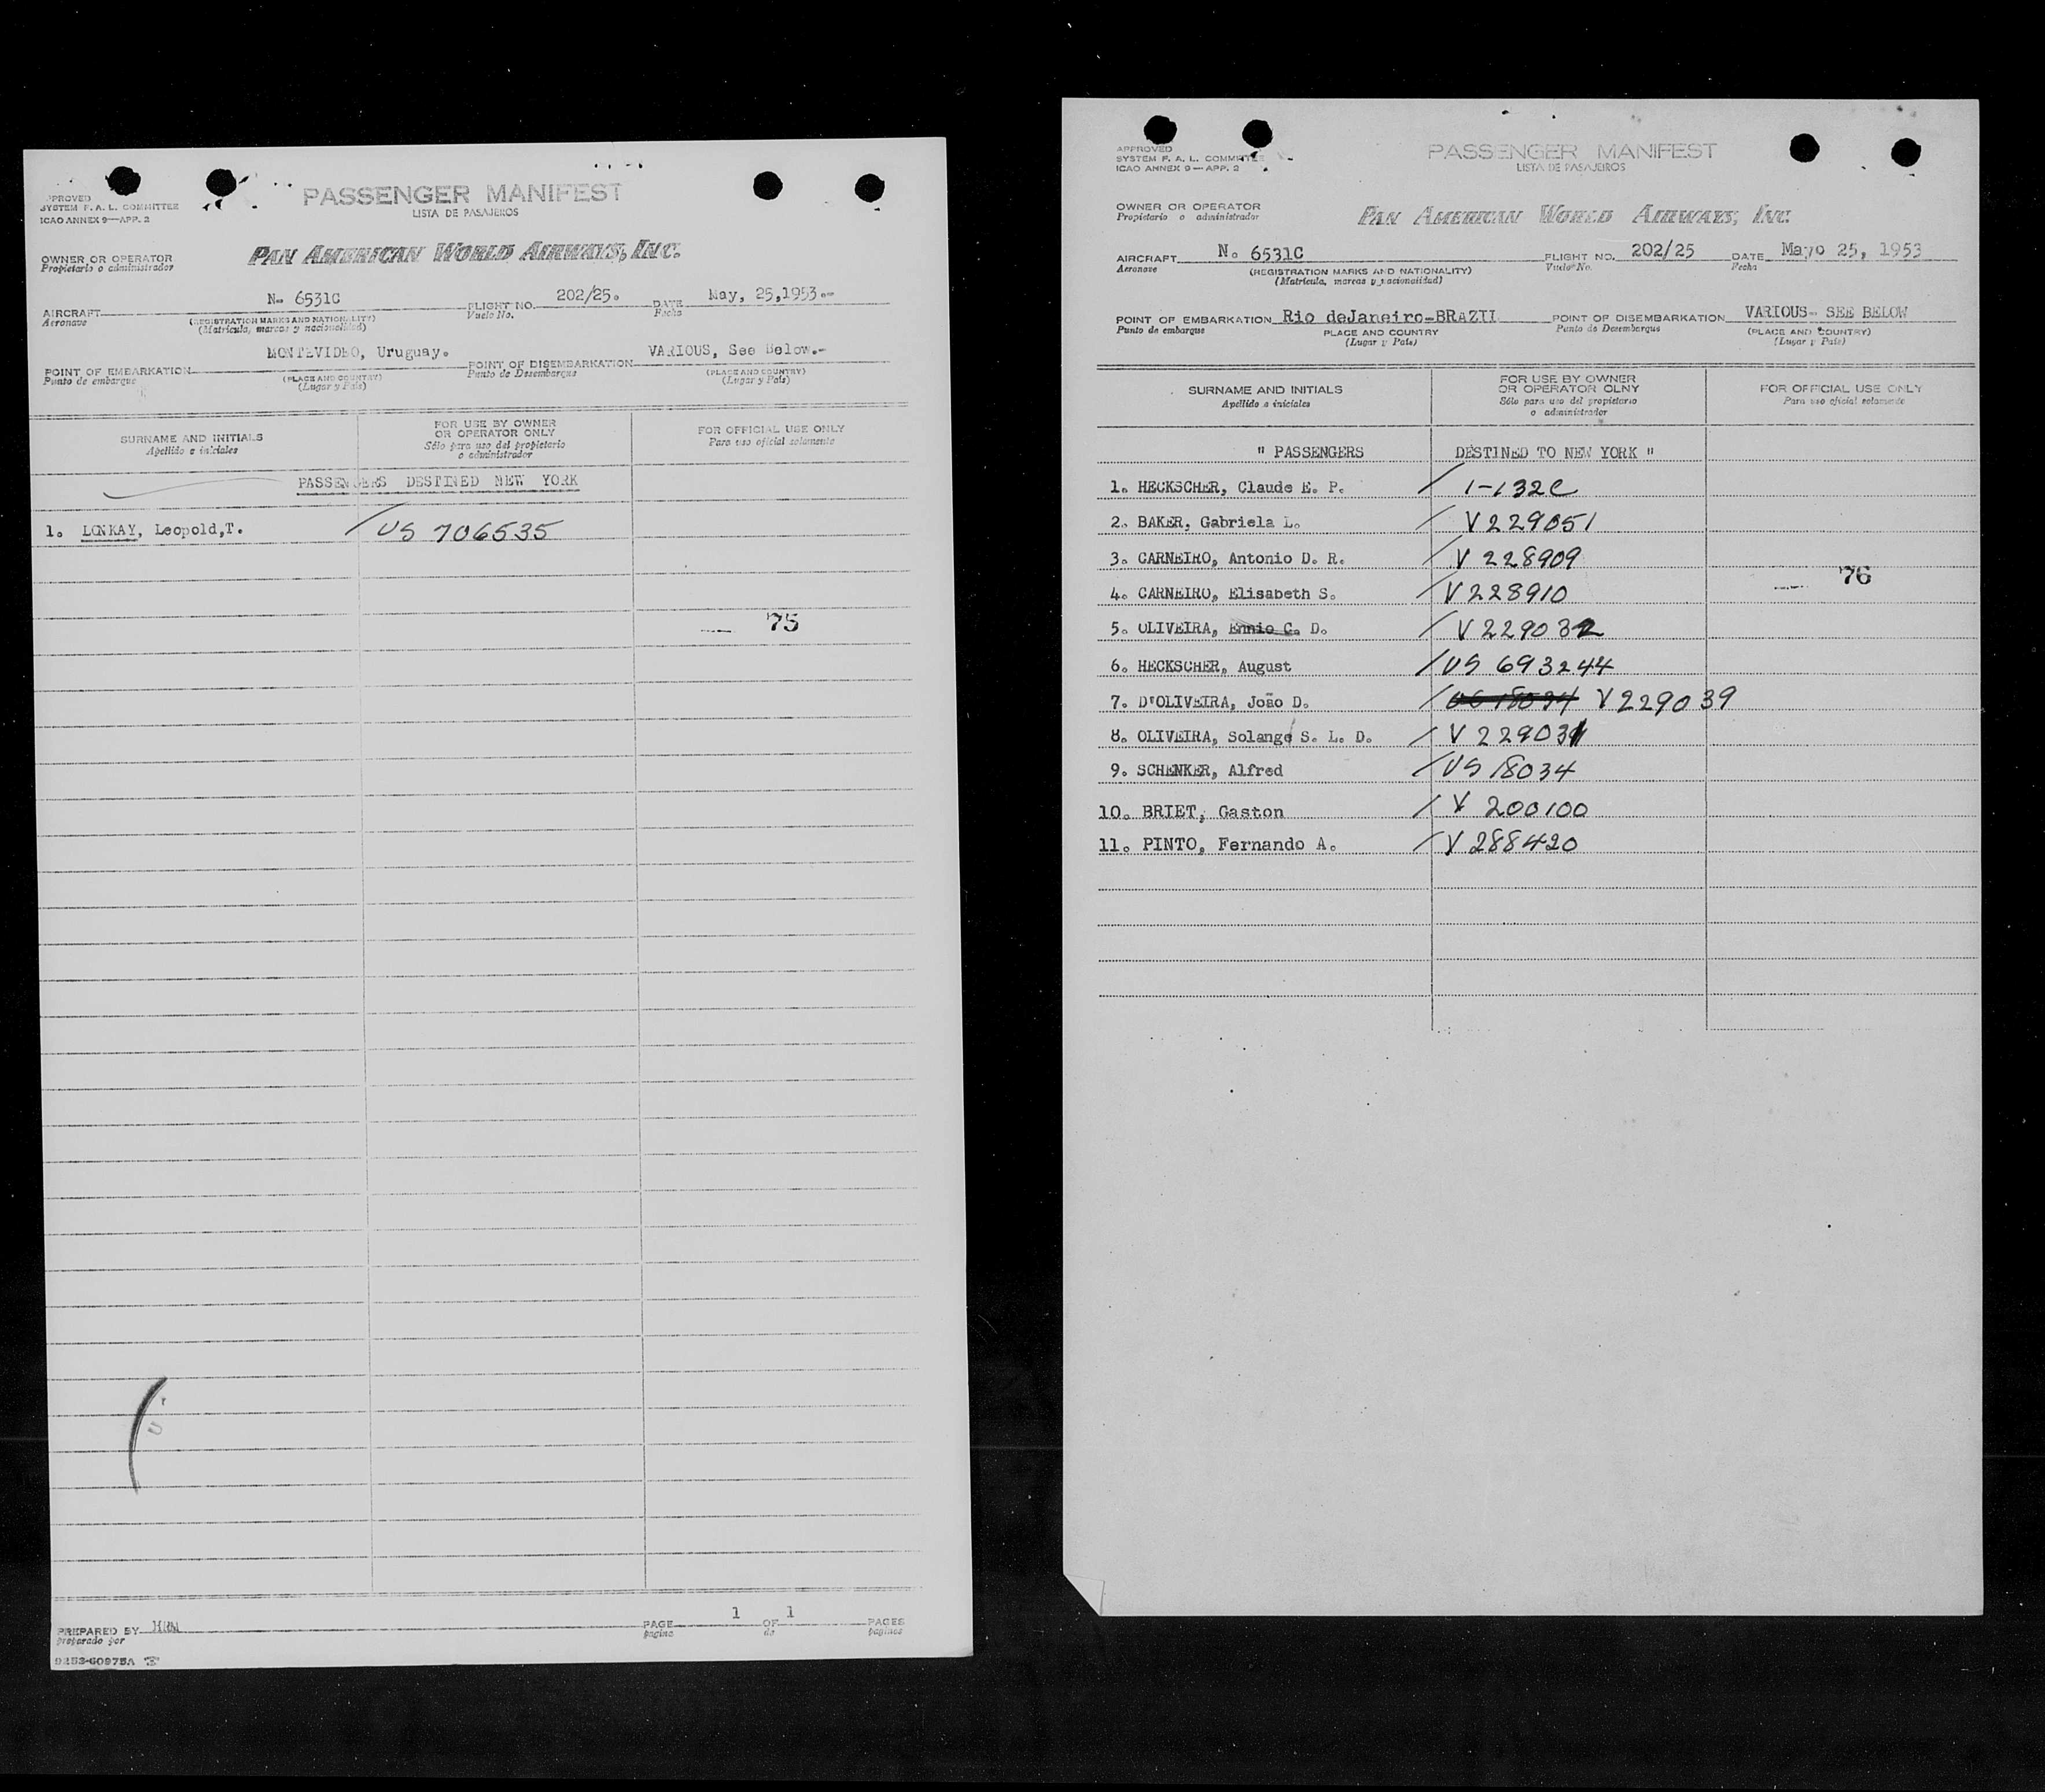 PPROVED
SYSTEM F. A. L. COMMITTEE
ICAO ANNEX 9—APP. 2
PASSENGER MANIFEST
LISTA DE PASAJEROS
OWNER OR OPERATOR
Propietario o administrador
PAN AMERICAN WORLD AIRWAYS, INC.
AIRCRAFT N- 6531C FLIGHT NO. 202/25. DATE May, 25,1953.-
Aeronave (REGISTRATION MARKS AND NATIONALITY) Vuelo No. Fecha
(Matricula, marcas y nacionalidad)
POINT OF EMBARKATION MONTEVIDEO, Uruguay. POINT OF DISEMBARKATION VARIOUS, See Below.-
Punto de embarque (PLACE AND COUNTRY) Punto de Desembarque (PLACE AND COUNTRY)
(Lugar y País) (Lugar y País)
SURNAME AND INITIALS
Apellido e iniciales
FOR USE BY OWNER
OR OPERATOR ONLY
Sólo para uso del propietario
o administrador
FOR OFFICIAL USE ONLY
Para uso oficial solamente
PASSENGERS DESTINED NEW YORK
1. LONKAY, Leopold,T. / US 706535
75
PREPARED BY PAGE 1 OF 1 PAGES
preparado por pagina de paginas
9253-60975A
APPROVED
SYSTEM F. A. L. COMMITTEE
ICAO ANNEX 9—APP. 2
PASSENGER MANIFEST
LISTA DE PASAJEROS
OWNER OR OPERATOR
Propietario o administrador
PAN AMERICAN WORLD AIRWAYS, INC.
AIRCRAFT N. 6531C FLIGHT NO. 202/25 DATE Mayo 25, 1953
Aeronave (REGISTRATION MARKS AND NATIONALITY) Vuelo No. Fecha
(Matricula, marcas y nacionalidad)
POINT OF EMBARKATION Rio deJaneiro-BRAZIL POINT OF DISEMBARKATION VARIOUS- SEE BELOW
Punto de embarque PLACE AND COUNTRY Punto de Desembarque (PLACE AND COUNTRY)
(Lugar y País) (Lugar y País)
SURNAME AND INITIALS
Apellido e iniciales
FOR USE BY OWNER
OR OPERATOR OLNY
Sólo para uso del propietario
o administrador
FOR OFFICIAL USE ONLY
Para uso oficial solamente
" PASSENGERS DESTINED TO NEW YORK "
1. HECKSCHER, Claude E. P. / 1-132C
2. BAKER, Gabriela L. / V229051
3. CARNEIRO, Antonio D. R. / V 228909
4. CARNEIRO, Elisabeth S. / V228910
76
5. OLIVEIRA, Ennio C. D. / V229032
6. HECKSCHER, August / US 693244
7. D'OLIVEIRA, João D. / US 18034 V229039
8. OLIVEIRA, Solange S. L. D. / V 229031
9. SCHENKER, Alfred / US 18034
10. BRIET, Gaston / V 200100
11. PINTO, Fernando A. / V288420